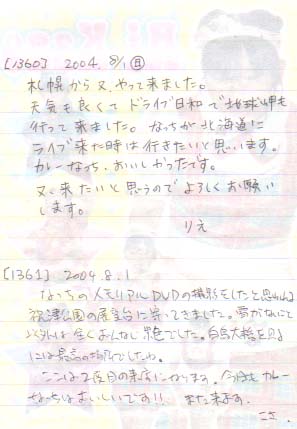 [1360] 2004. 8/1 (日)
札幌から又、やって来ました。
天気も良くて ドライブ日和で 地球岬も
行って来ました。なっちが 北海道に
ライブ来た時は 行きたいと思います。
カレーなっち、おいしかったです。
又、来たいと思うので よろしくお願い
します。
りえ
[1361] 2004. 8. 1
なっちのメモリアルDVDの撮影をしたと思われる
祝津公園の展望台に寄ってきました。雪がないこと
以外は全くおんなじ景色でした。白鳥大橋を見る
には最高の場所でしたね。
ここは2度目の来店になります。今日もカレー
なっちはおいしいです!! また来ます。